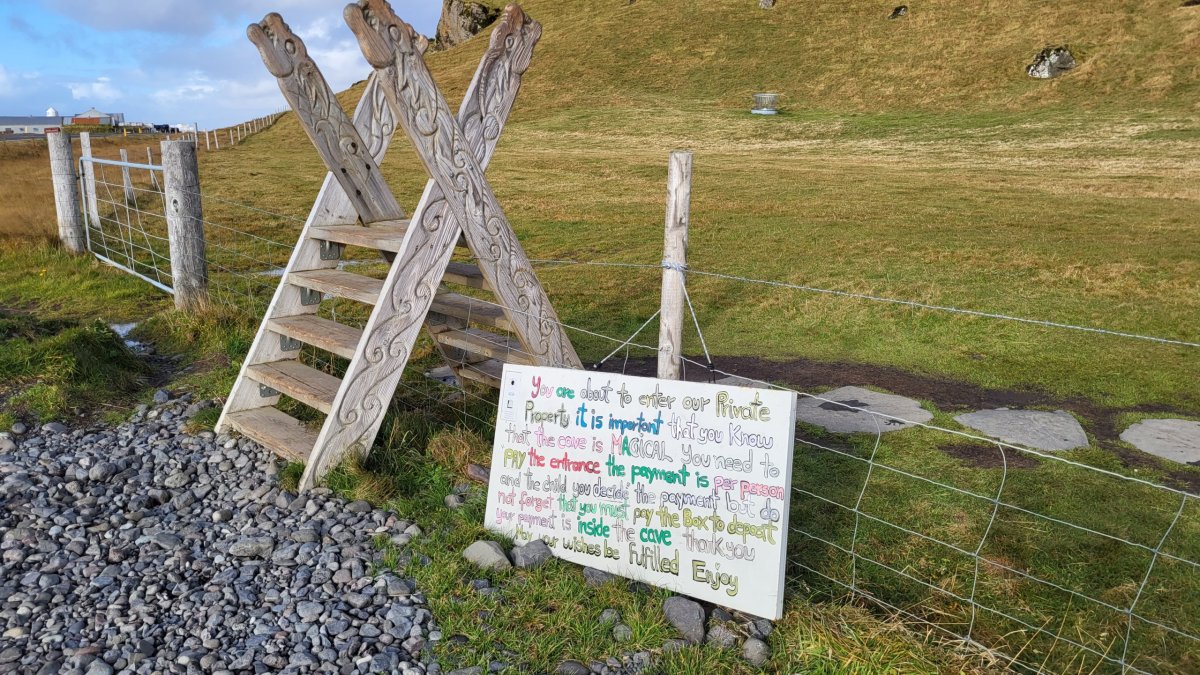 You are about to enter our Private
Property it is important that you Know
that the cave is MAGICAL you need to
PAY the entrance the payment is per person
and the child you decide the payment but do
not forget that you must pay the Box to deposit
your payment is inside the cave thank you
May your wishes be fulfilled Enjoy